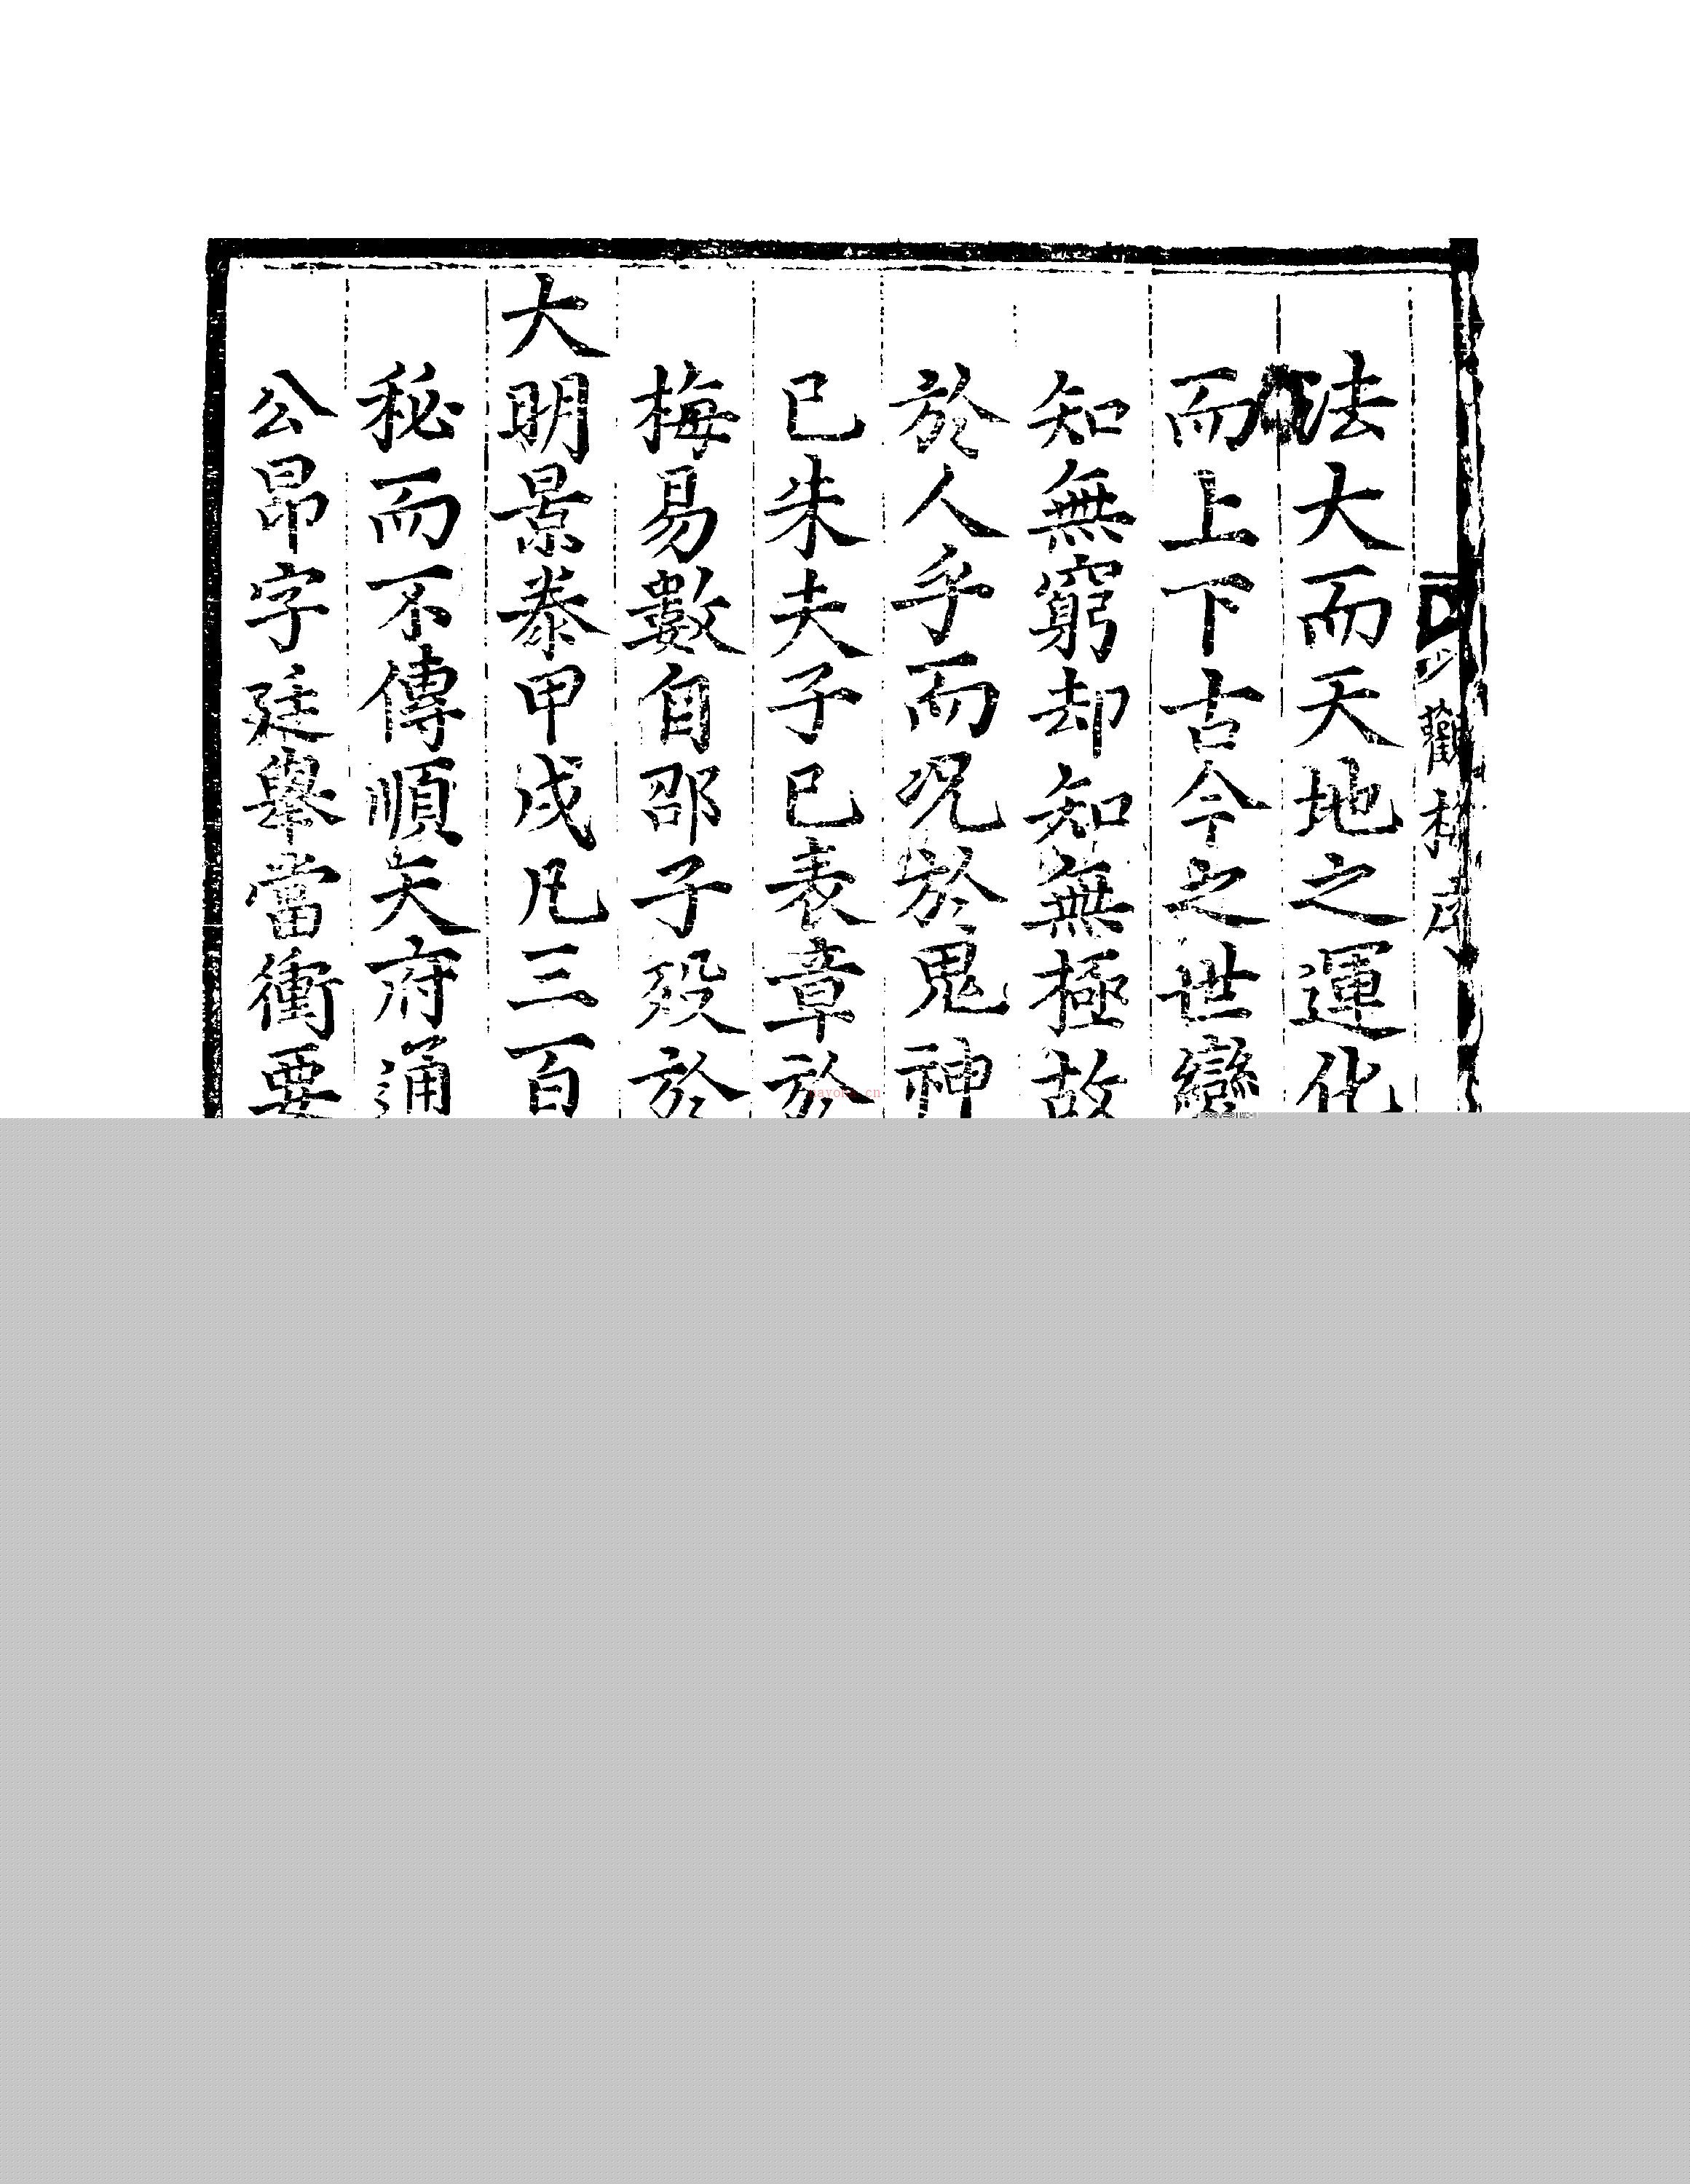 觀梅序
法大而天地之運化
而上下古今之世變
知無窮却知無極故
於人乎而况於鬼神
已朱夫子已表章於
梅易數自邵子殁於
大明景泰甲戌凡三百
秘而不傳順天府通
公昂字廷舉當衝要